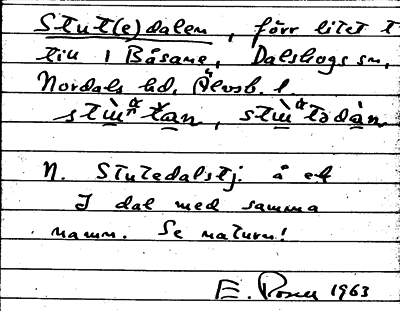 Stut(e)dalen, förr litet t
till 1 Båsane, Dalskogs sn,
Nordals hd, Älvsb. l.
N. Stutedalstj. å ek
I dal med samma
namn. Se naturn!
E. 1963